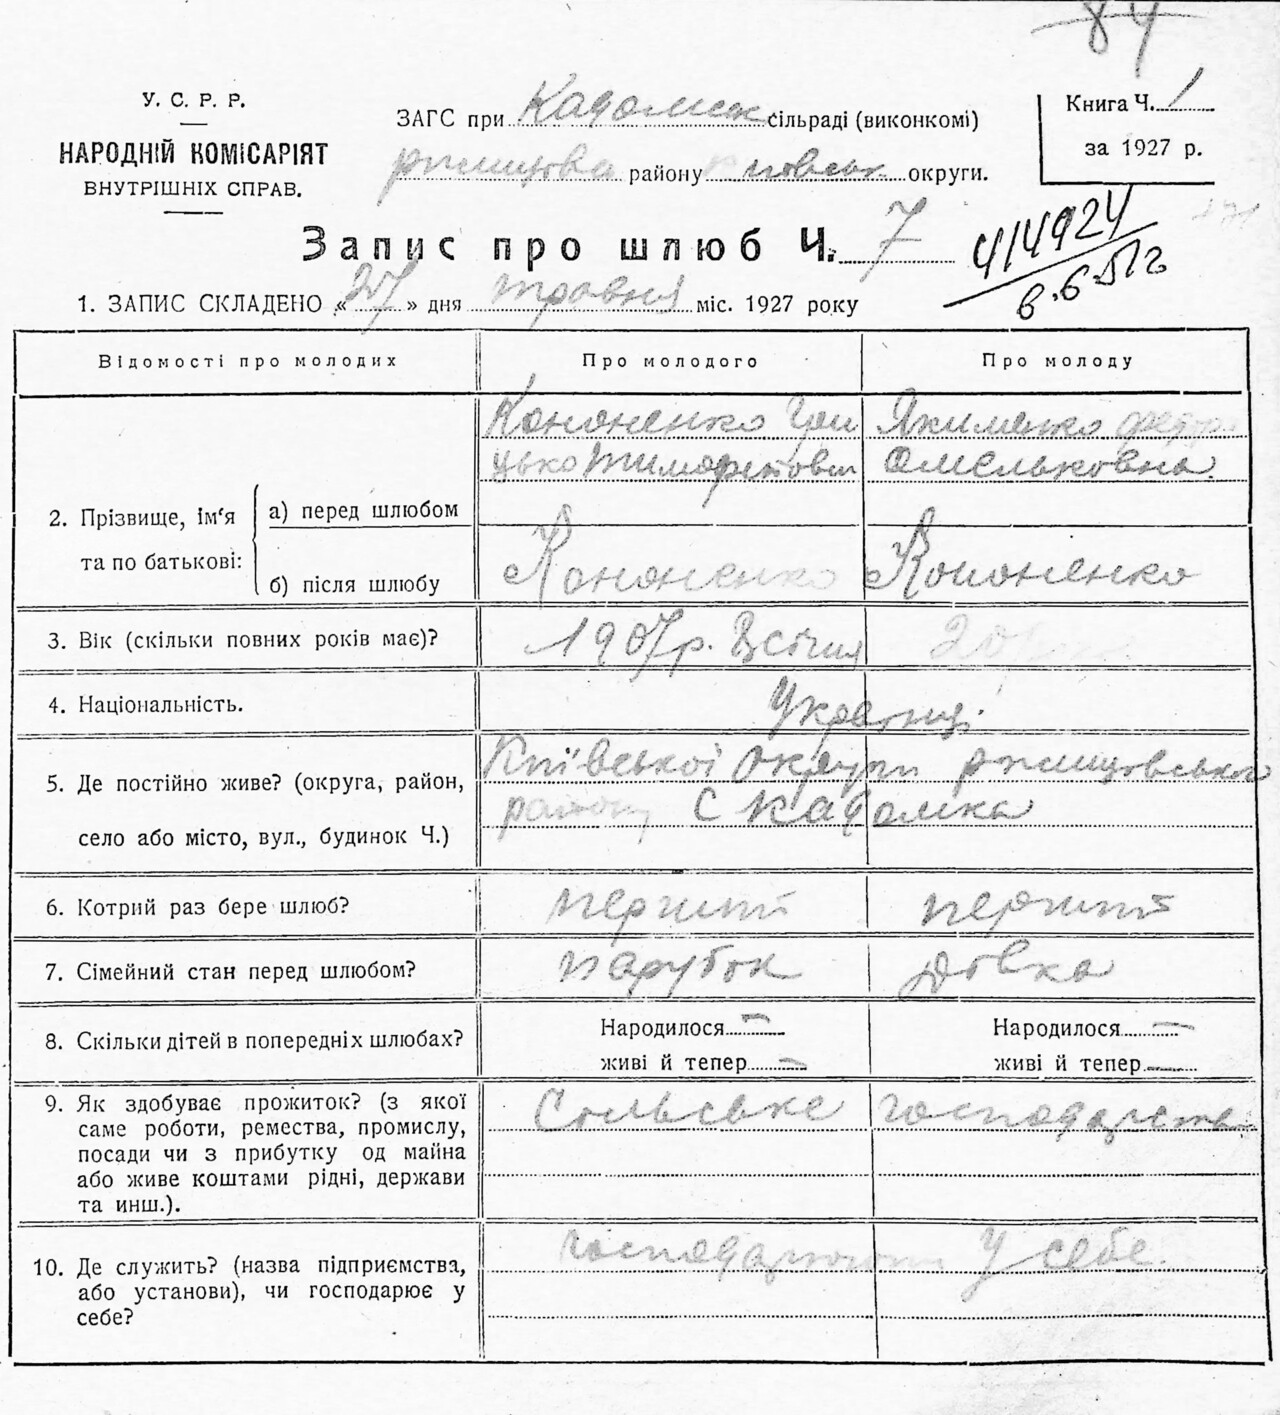 84
У. С. Р. Р.
НАРОДНІЙ КОМІСАРІЯТ
ВНУТРІШНІХ СПРАВ.
ЗАГС при Кадомск сільраді (виконкомі)
ржищова району округи.
Книга Ч. 1
за 1927 р.
Запис про шлюб Ч. 7
414924
6.6.51г
1. ЗАПИС СКЛАДЕНО „ 27 " дня травня міс. 1927 року
Відомості про молодих Про молодого Про молоду
Кононенко Гри Якименко
цько Тимофійович Омельковна
2. Прізвище, ім'я та по батькові: а) перед шлюбом
б) після шлюбу Кононенко Кононенко
3. Вік (скільки повних років має)? 1907 р. Січня 20
4. Національність. Українці
5. Де постійно живе? (округа, район, Київської Округи ржищовського
село або місто, вул., будинок Ч.) району С Кадомка
6. Котрий раз бере шлюб? перший перший
7. Сімейний стан перед шлюбом? парубок дівка
8. Скільки дітей в попередніх шлюбах? Народилося — Народилося —
живі й тепер — живі й тепер —
9. Як здобуває прожиток? (з якої Сільське господарство
саме роботи, ремества, промислу,
посади чи з прибутку од майна
або живе коштами рідні, держави
та инш.).
10. Де служить? (назва підприємства, у себе.
або установи), чи господарює у
себе?